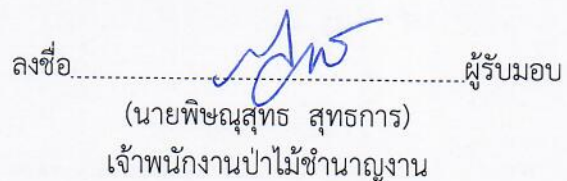 ลงชื่อ........................................................ผู้รับมอบ
(นายพิษณุสุทธ สุทธการ)
เจ้าพนักงานป่าไม้ชำนาญงาน